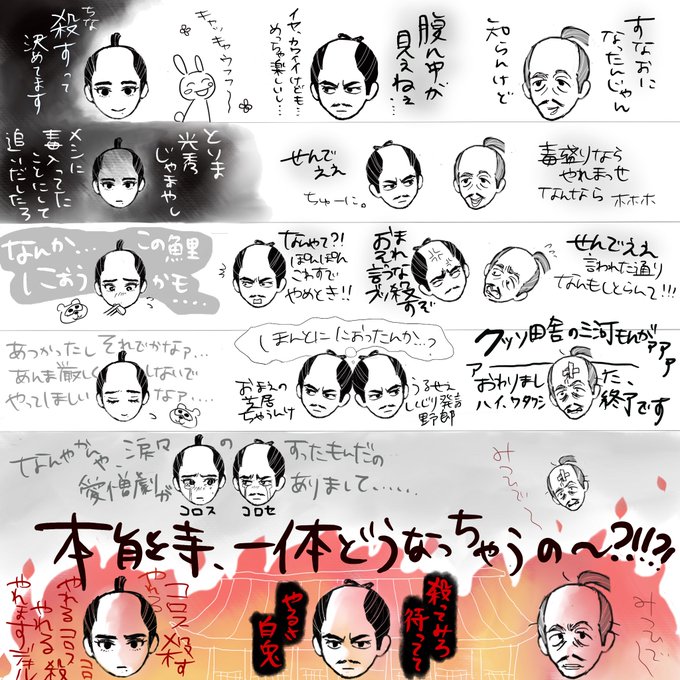 すなおに
なったんじゃん
知らんけど
腹ん中が
見えねぇ…
イヤ、カワイイけども…
めっちゃ楽しいし…
キャッキャウフフ〜
ちな
殺すって
決めてます
毒盛りなら
やれまっせ
なんなら ホホホ
せんでええ
ちゅーに。
とりま
光秀
じゃまやし
メシに
毒入ってた
ことにして
追いだしたろ
せんでええ
言われた通り
なんもしとらんて!!!
まれ
おそれ
言うな
ブッ殺すぞ
なんやて?!
ぽんぽん
こわすで
やめとき!!
この鯉
なんか…
におうかも…
クッソ田舎の三河もんがァァァァ
おわりました、
ハイ、ワタクシ終了です
ほんとににおったんか…?
うるせえ
しくじり発言
野郎
おまえの
芝居
ちゃうんけ
あつかったし それでかなァ…
あんま厳しくしないで
やってほしいなァ…
みつひで〜
なんやかんや、涙々の
すったもんだの
愛憎劇が
ありまして、……
コロス
コロセ
本能寺、一体どうなっちゃうの〜?!!?!
みつひで
殺ってみろ
待ってて
やるさ
白兎
コロス 殺す